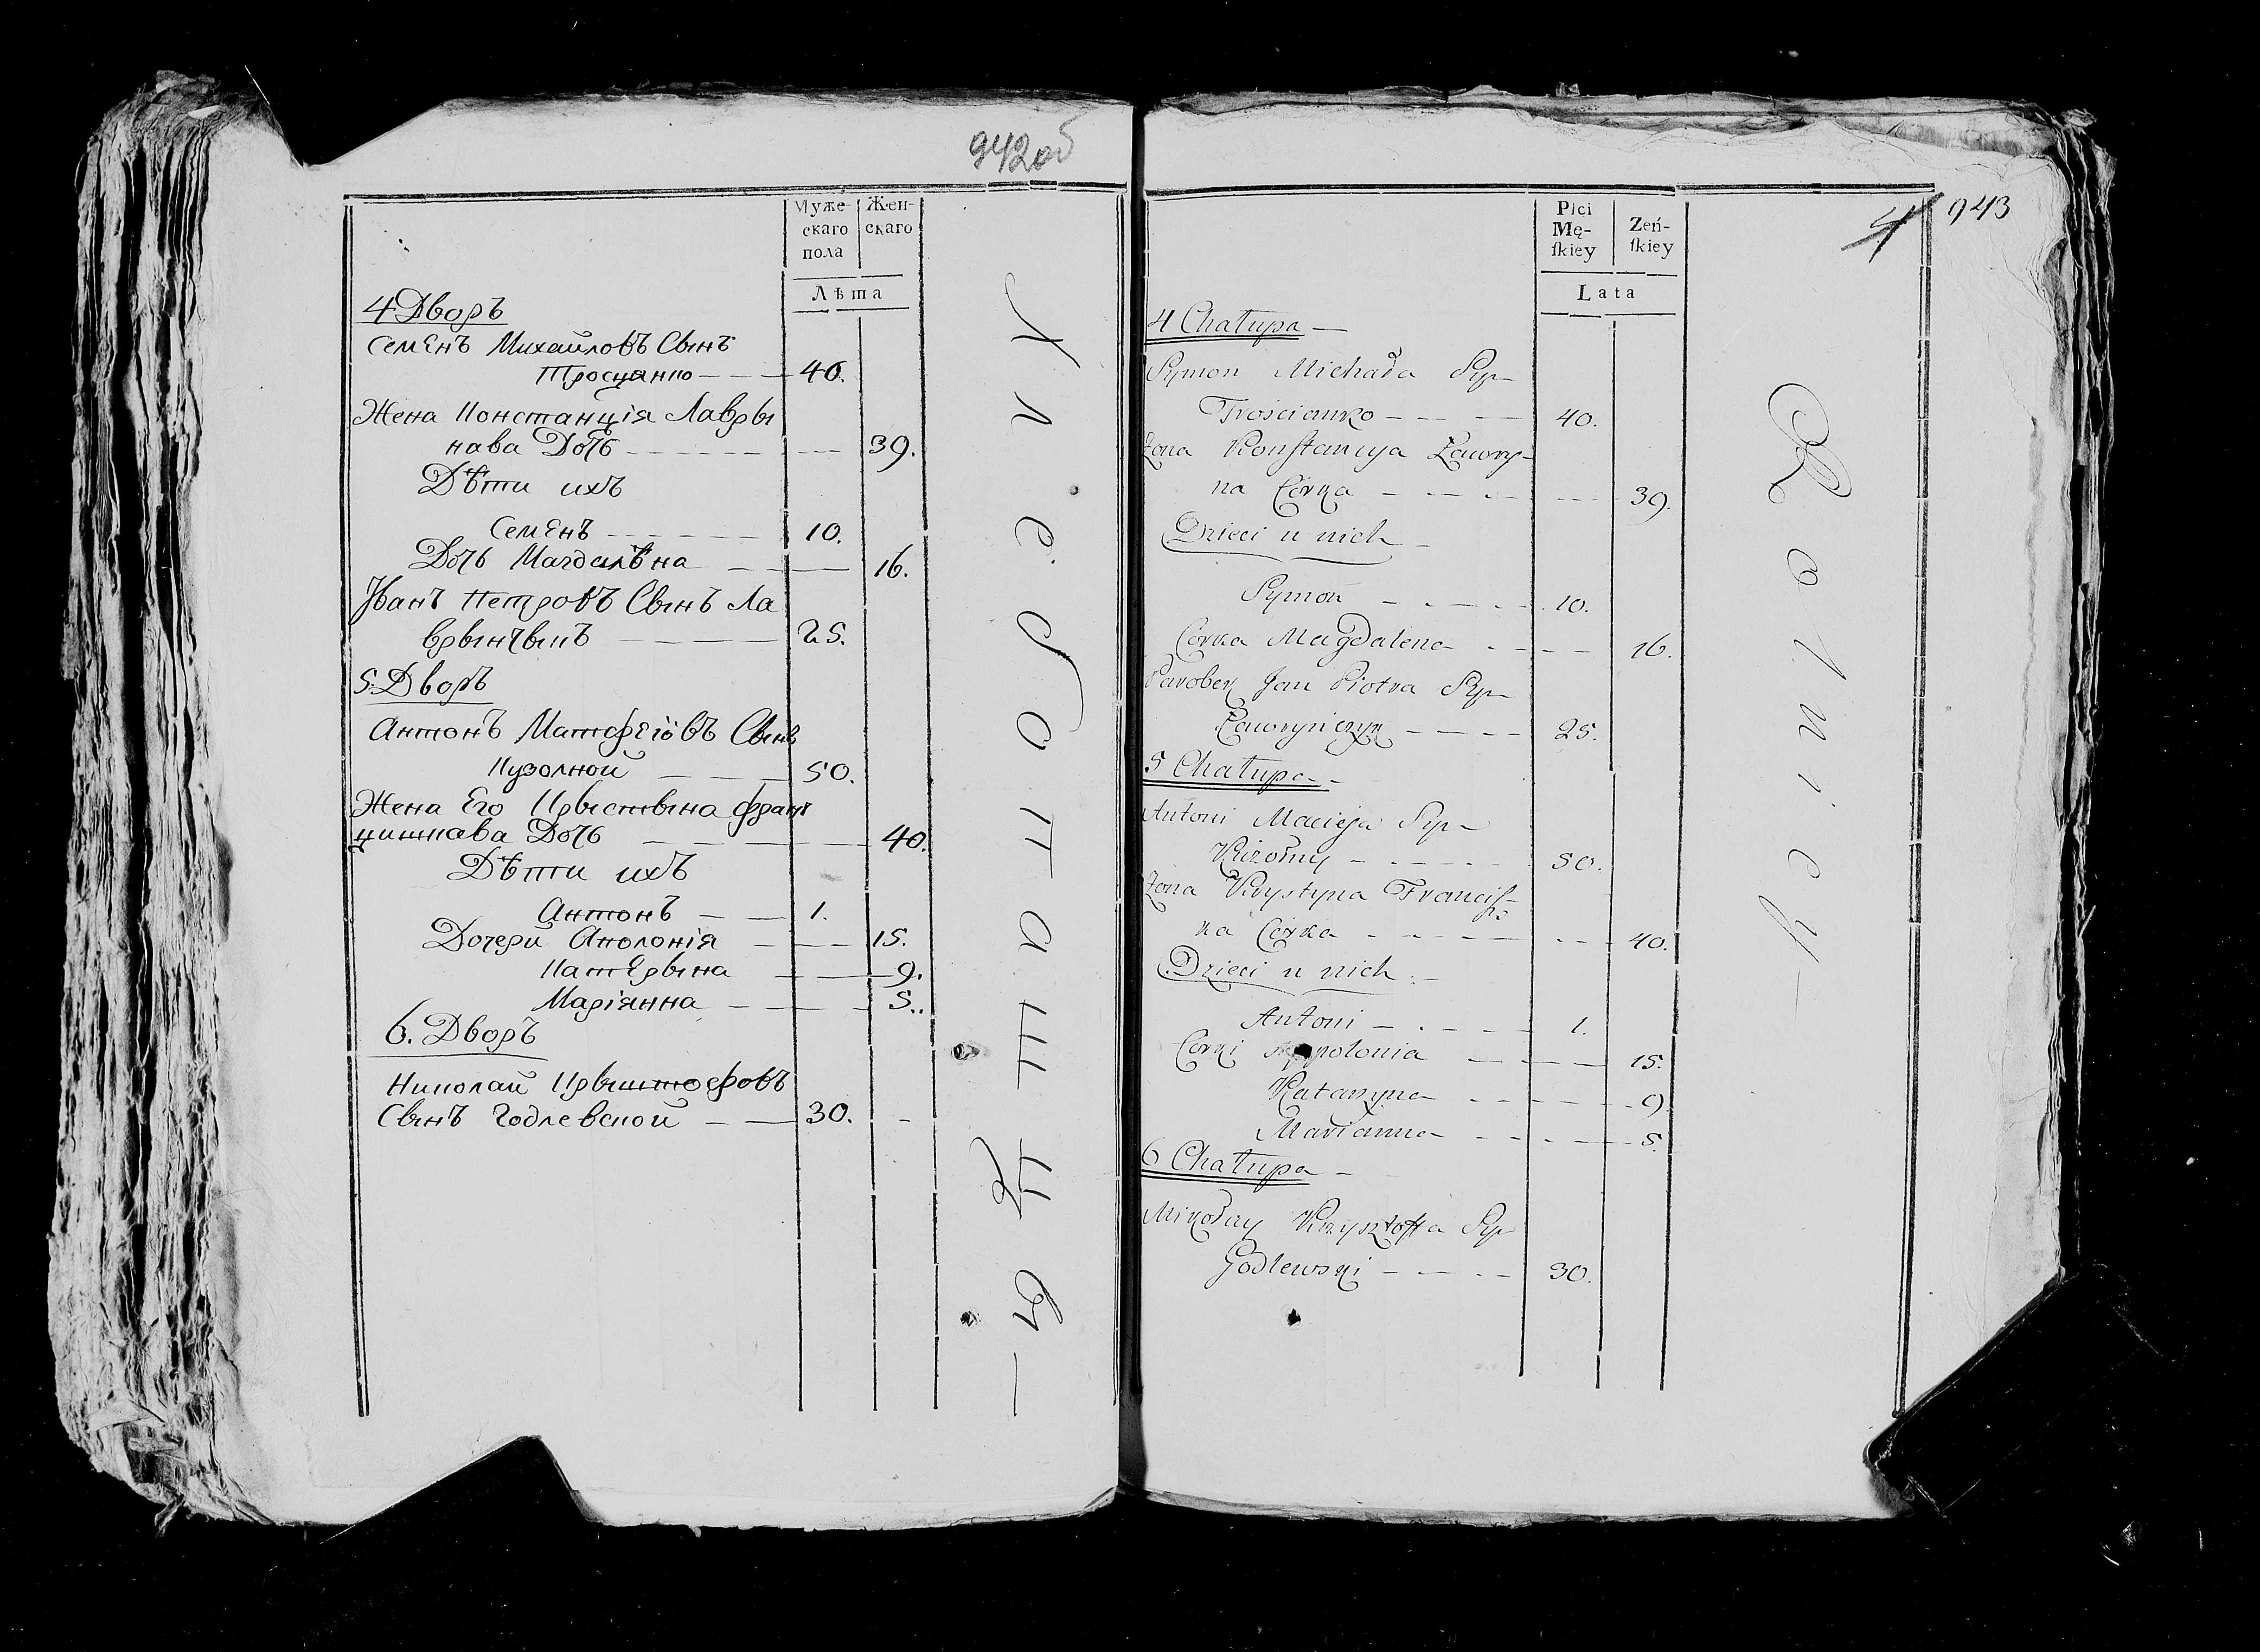 942об
Муже-
скаго
пола
Жен-
скаго
Лѣта
4 Дворъ
Семенъ Михайловъ Сынъ
Тросцянко 40.
Жена Констанція Лавры
нава Дочь 39.
Дѣти ихъ
Семенъ 10.
Дочь Магдалѣна 16.
Иванъ Петровъ Сынъ Ла
врынчыкъ 25.
5. Дворъ
Антонъ Матфеіовъ Сынъ
Кузолной 50.
Жена Его Крыстына Фран
цишкава Дочь 40.
Дѣти ихъ
Антонъ 1.
Дочери Аполонія 15.
Катерына 9.
Маріянна 5.
6. Дворъ
Николай Крыштофовъ
Сынъ Годлевской 30.
Хлебопашцы
943
4
Płci
Mę-
ſkiey
Zeń-
ſkiey
Lata
4 Chałupa
Symon Michała Syn
Trościanko 40.
Zona Konstancya Ławry-
na Corka 39.
Dzieci u nich
Symon 10.
Corka Magdalena 16.
Parobek Jan Piotra Syn
Ławryńczyk 25.
5 Chałupa
Antoni Macieja Syn
50.
Zona Krystyna Francisz-
ka Corka 40.
Dzieci u nich
Antoni 1.
Corki Appolonia 15.
Katarzyna 9.
Marianna 5.
6 Chałupa
Mikołay Krzysztoffa Syn
Godlewski 30.
Rolnicy